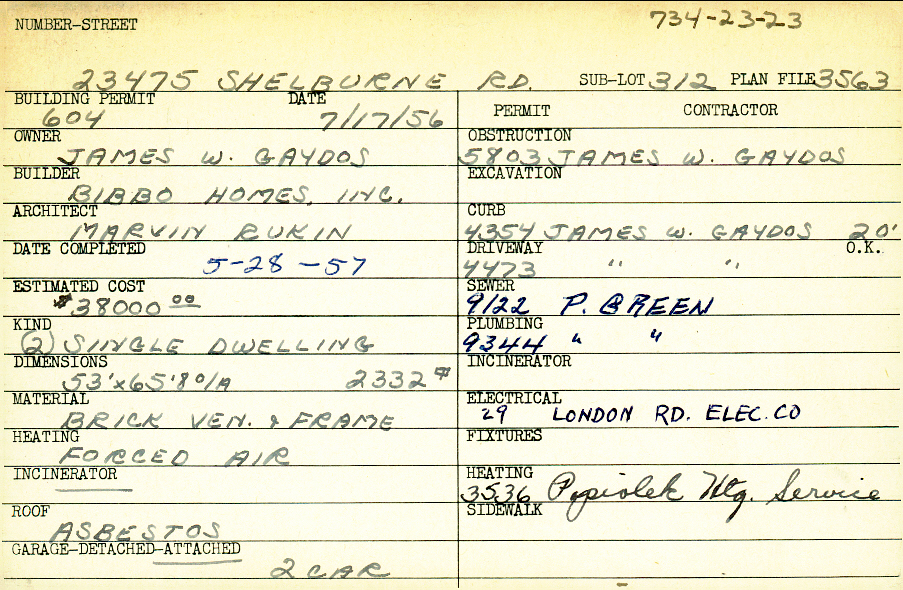 NUMBER-STREET 734-23-23
23475 SHELBURNE RD. SUB-LOT 312 PLAN FILE 3563
BUILDING PERMIT DATE
604 7/17/56
OWNER
JAMES W. GAYDOS
BUILDER
BIBBO HOMES, INC.
ARCHITECT
MARVIN RUKIN
DATE COMPLETED
5-28-57
ESTIMATED COST
$38000 00
KIND
(2) SINGLE DWELLING
DIMENSIONS
53'x65'8 O/A 2332 #
MATERIAL
BRICK VEN. & FRAME
HEATING
FORCED AIR
INCINERATOR
ROOF
ASBESTOS
GARAGE-DETACHED-ATTACHED
2 CAR
PERMIT CONTRACTOR
OBSTRUCTION
5803 JAMES W. GAYDOS
EXCAVATION
CURB
4354 JAMES W. GAYDOS 20'
DRIVEWAY O.K.
4473 " "
SEWER
9122 P. GREEN
PLUMBING
9344 " "
INCINERATOR
ELECTRICAL
29 LONDON RD. ELEC. CO
FIXTURES
HEATING
3536 Popiolek Htg. Service
SIDEWALK